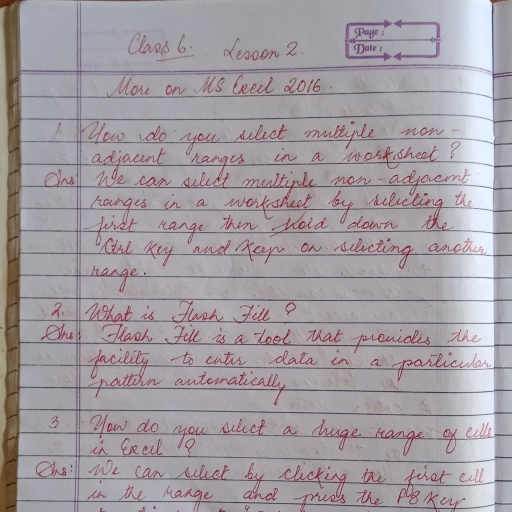 Page :
Date :
Class 6. Lesson 2.
More on MS Excel 2016.
1. How do you select multiple non-
adjacent ranges in a worksheet?
Ans We can select multiple non-adjacent
ranges in a worksheet by selecting the
first range then hold down the
Ctrl Key and Keep on selecting another
range.
2. What is Flash Fill ?
Ans: Flash Fill is a tool that provides the
facility to enter data in a particular
pattern automatically
3 How do you select a huge range of cells
in Excel ?
Ans: We can select by clicking the first cell
in the range and press the F8 Key